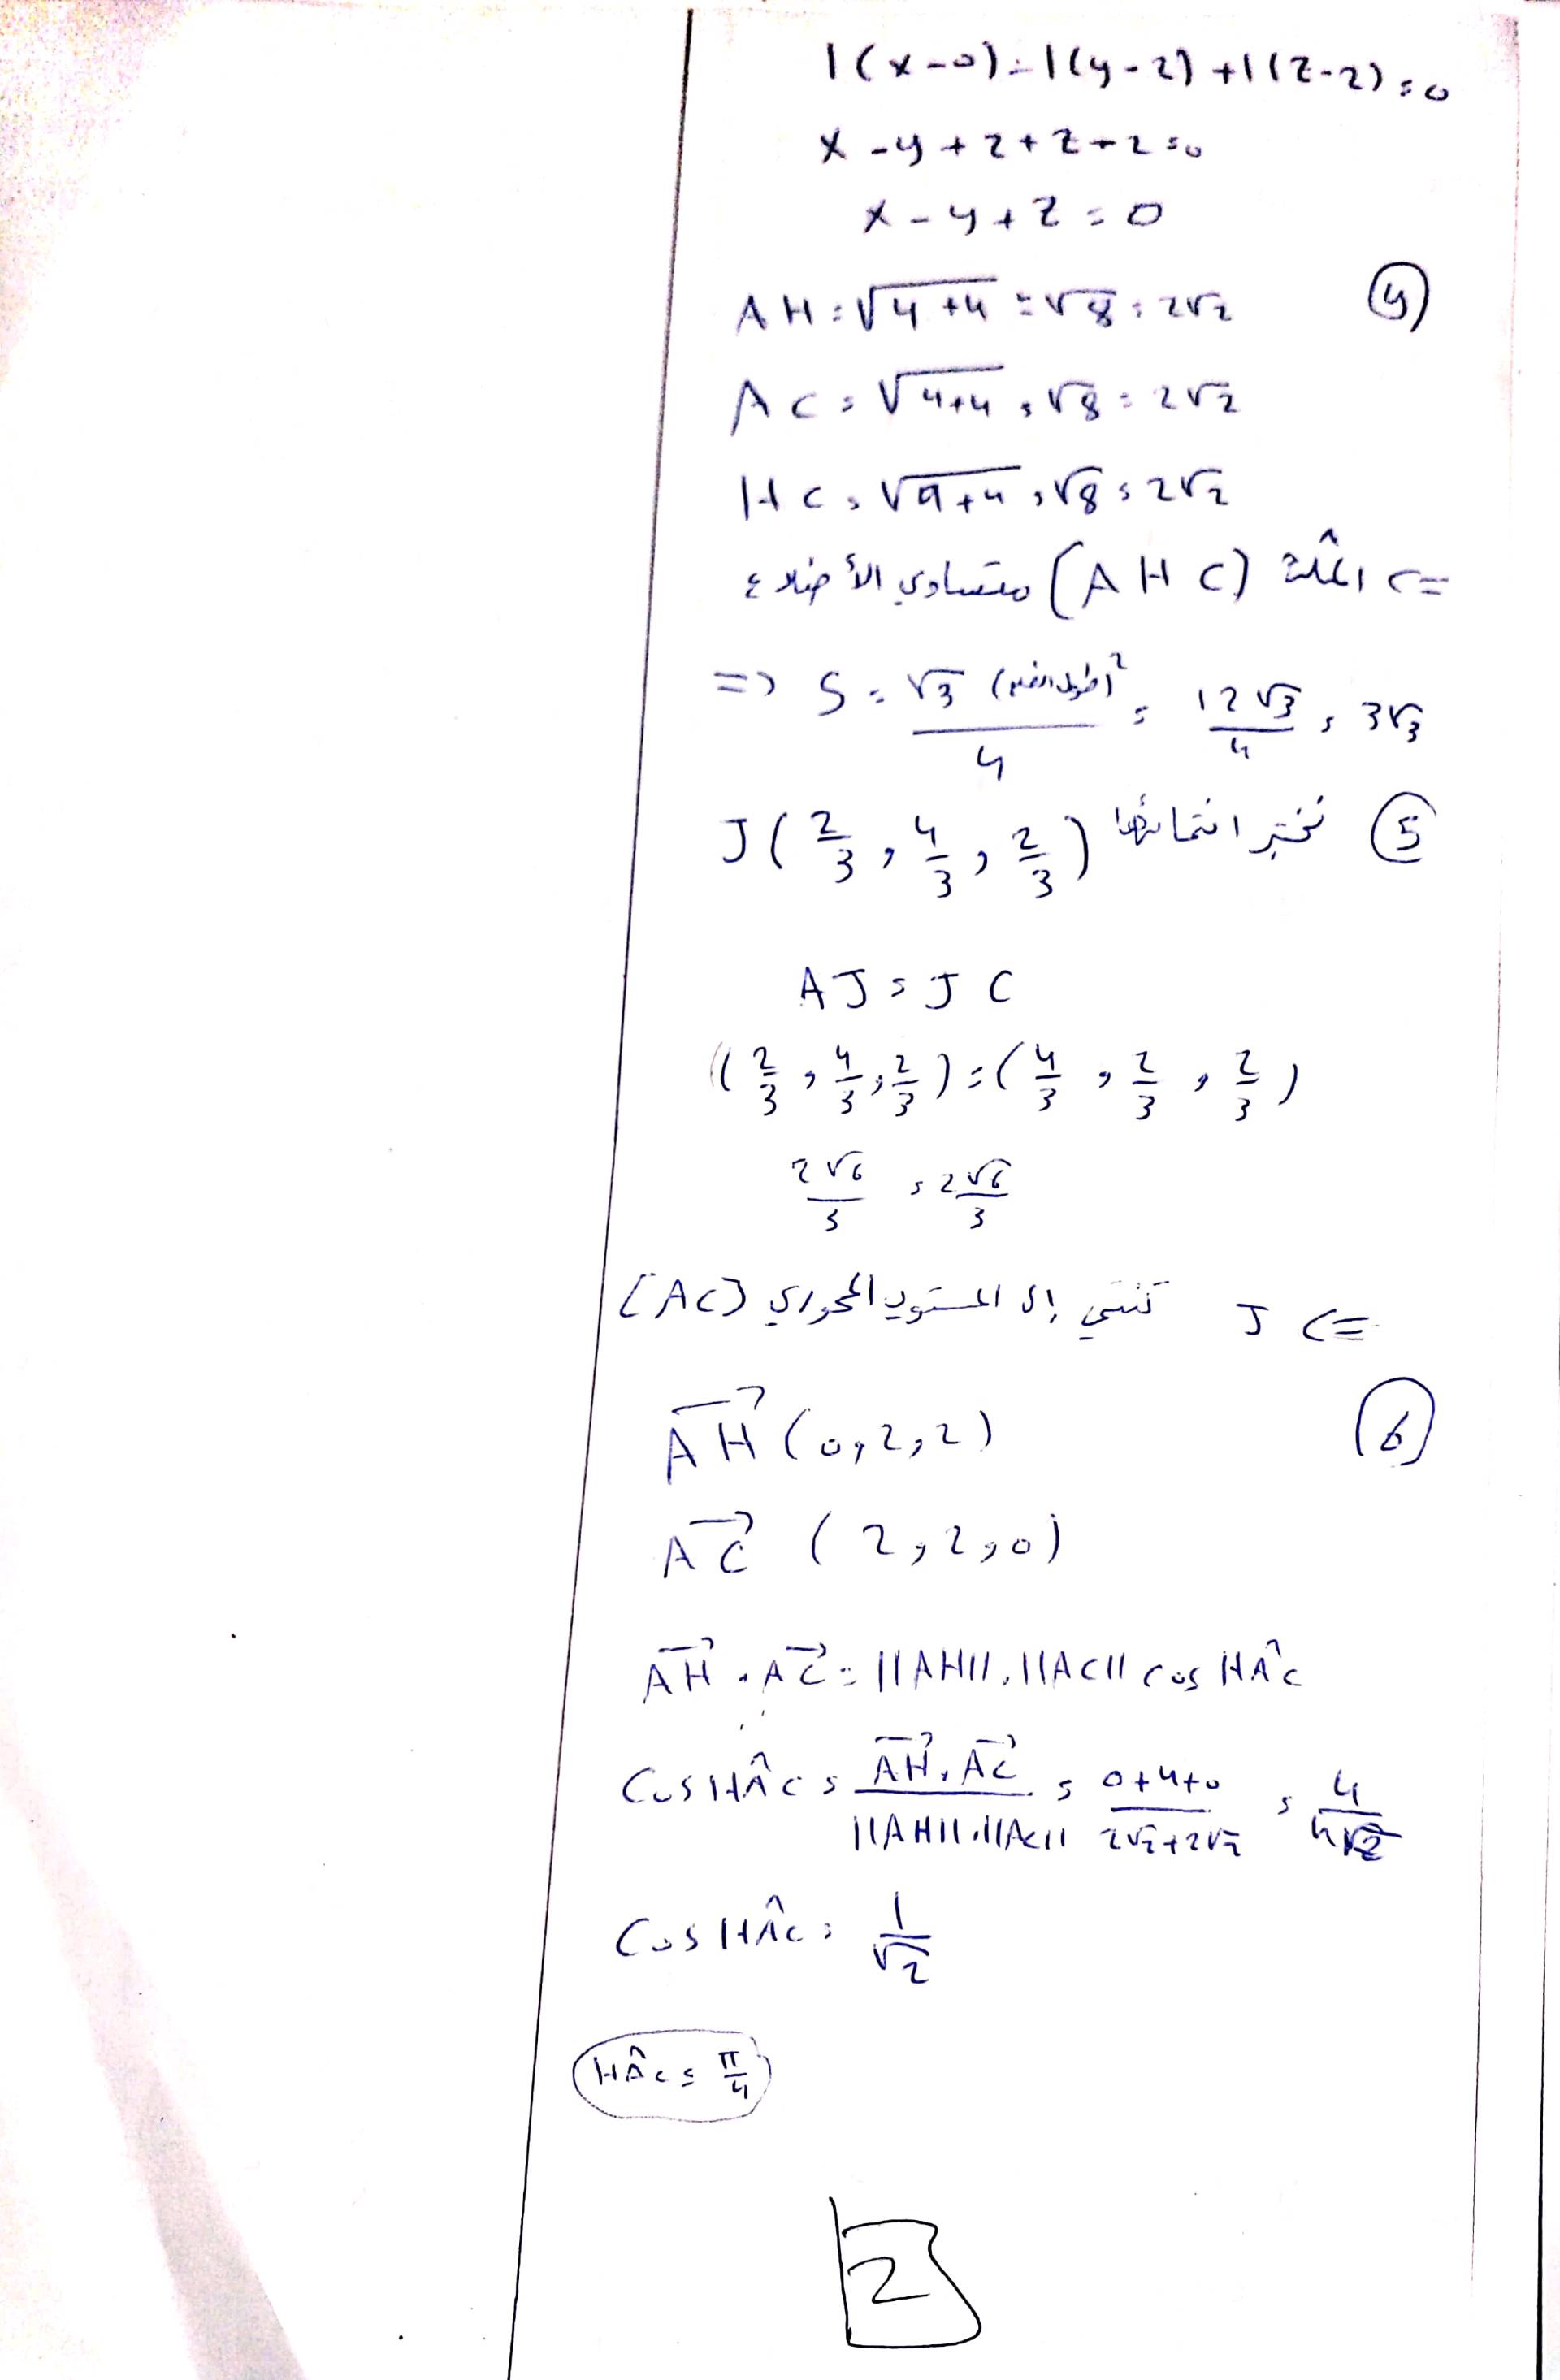 1(x-0)-1(y-2)+1(z-2)=0
x-y+2+z-2=0
x-y+z=0
④ AH=√4+4=√8=2√2
AC=√4+4=√8=2√2
HC=√4+4=√8=2√2
<= المثلث (AHC) متساوي الأضلاع
=> S=√3(طول الضلع)²/4=12√3/4=3√3
⑤ نختبر انتمائها J(2/3, 4/3, 2/3)
AJ=JC
(2/3, 4/3, 2/3)=(4/3, 2/3, 2/3)
2√6/3=2√6/3
<= J تنتمي إلى المستوي المحوري [AC]
⑥ AH→(0,2,2)
AC→(2,2,0)
AH→.AC→=||AH||.||AC|| cos HÂC
Cos HÂC=AH→.AC→/||AH||.||AC||=0+4+0/2√2+2√2=4/4√2
Cos HÂC=1/√2
HÂC=π/4
2